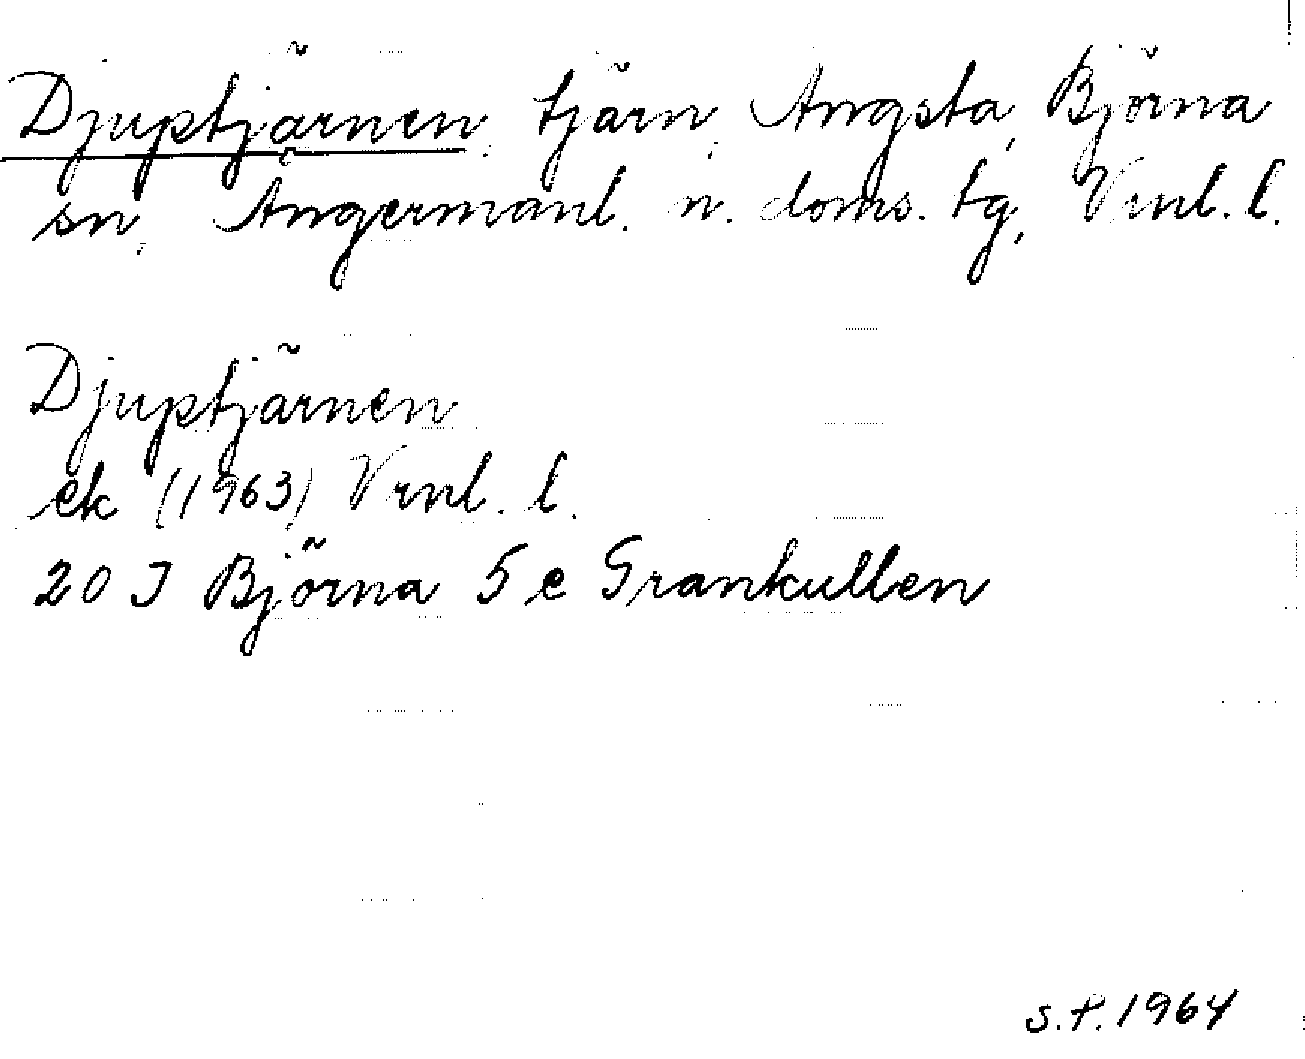 Djuptjärnen, tjärn, Angsta, Björna
sn, Ångermanl. n. doms. tg, Vrnl. l.
Djuptjärnen
ek (1963) Vrnl. l.
20 J Björna 5 e Grankullen
S.P. 1964